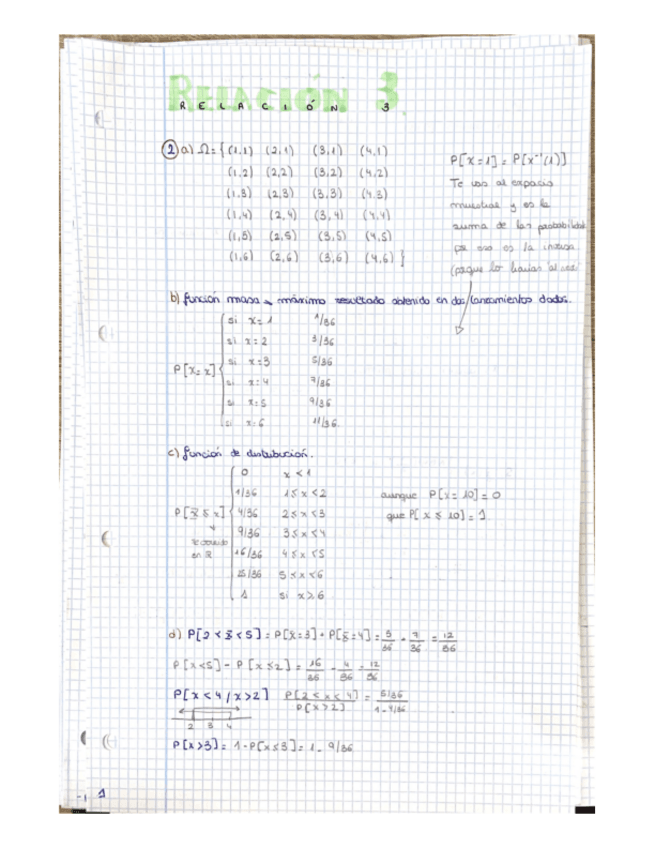 RELACIÓN 3
RELACIÓN 3
2 a) Ω = { (1,1) (2,1) (3,1) (4,1)
(1,2) (2,2) (3,2) (4,2)
(1,3) (2,3) (3,3) (4,3)
(1,4) (2,4) (3,4) (4,4)
(1,5) (2,5) (3,5) (4,5)
(1,6) (2,6) (3,6) (4,6) }
P[X=1] = P[X⁻¹(1)]
Te vas al espacio
muestral y es la
suma de las
por eso es la inversa
(porque lo harías al
b) función masa → máximo resultado obtenido en dos lanzamientos dados.
P[X=x]
si x=1 1/36
si x=2 3/36
si x=3 5/36
si x=4 7/36
si x=5 9/36
si x=6 11/36
c) función de distribución.
P[X≤x]
0 x<1
1/36 1≤x<2
4/36 2≤x<3
9/36 3≤x<4
16/36 4≤x<5
25/36 5≤x<6
1 si x≥6
en ℝ
aunque P[X=10]=0
que P[X≤10]=1
d) P[2<X<5] = P[X=3] + P[X=4] = 5/36 + 7/36 = 12/36
P[X<5] - P[X≤2] = 16/36 - 4/36 = 12/36
P[X<4/X>2] P[2<X<4]/P[X>2] = 5/36/1-4/36
2 3 4
P[X>3] = 1-P[X≤3] = 1-9/36
1